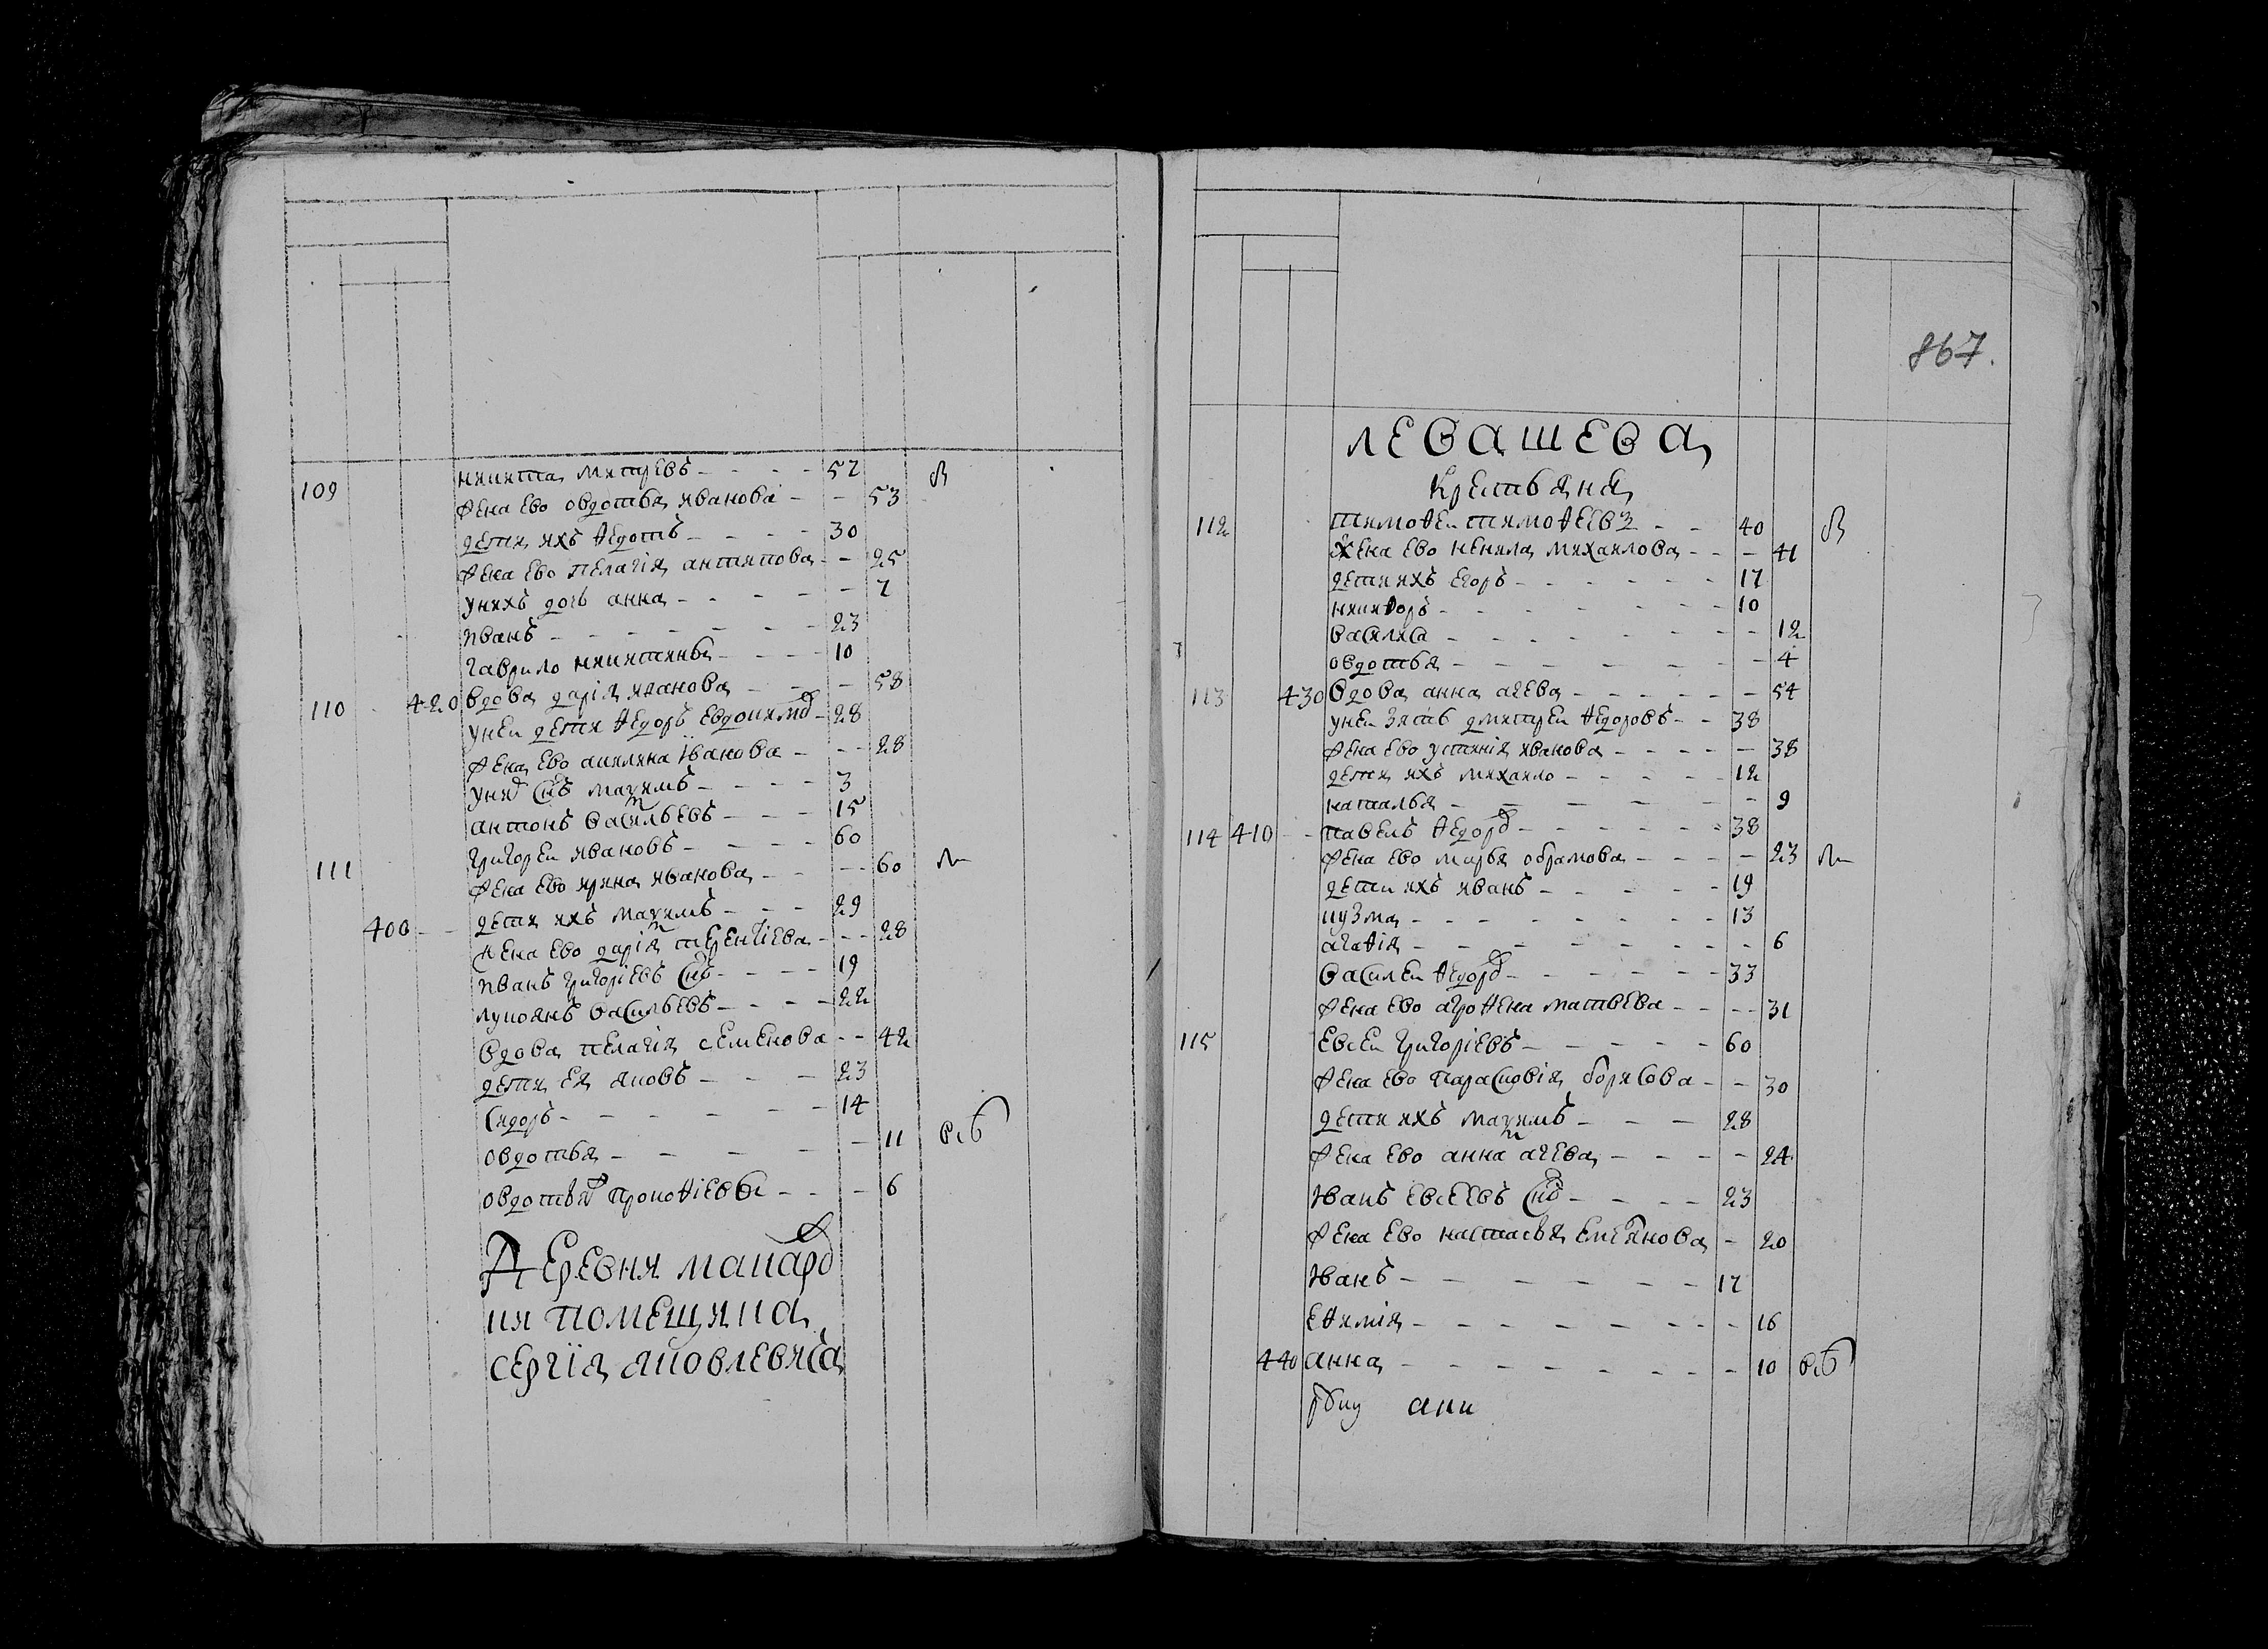 109 никита митревъ - - - - 52 в
жена ево овдотья иванова - - 53
дети ихъ федотъ - - - - 30
жена ево пелагія антипова - - 25
унихъ дочь анна - - - - - 7
иванъ - - - - - - - 23
гаврило никитинъ - - - - 10
110 420 вдова дарія иванова - - - 58
унеи дети федоръ евдокимо - 28
жена ево акилина іванова - - - 28
унихъ снъ мауимъ - - - - 3
антонъ василъевъ - - - 15
111 григореи ивановъ - - - - 60
жена ево ирина иванова - - - - 60
400 - - дети ихъ мауимъ - - - 29
жена ево дарія терентіева - - - 28
иванъ григоріевъ снъ - - - - 19
лукоянъ василъевъ - - - - 22
вдова пелагія семенова - - 42
дети ея яковъ - - - - 23
сидоръ - - - - - - 14
овдотья - - - - - 11
овдотья прокофіевы - - - - 6
Деревня макаро
ки помещика
сергїя яковлевича
867.
левашева
крестьяня
112 тимофеи тимофеевъ - - 40 в
жена ево ненила михаилова - - - 41
дети ихъ егоръ - - - - - - 17
никифоръ - - - - - - - - 10
василиса - - - - - - - - - 12
овдотья - - - - - - - - 4
113 430 вдова анна агева - - - - - - 54
унеи зять дмитреи федоровъ - - 38
жена ево устинія иванова - - - - - 38
дети ихъ михаило - - - - - 12
наталья - - - - - - 9
114 410 - - павелъ федоро - - - - - - 38
жена ево марья обрамова - - - - 23
дети ихъ иванъ - - - - - 19
кузма - - - - - - - - 13
агафія - - - - - - - - 6
василеи федоро - - - - - - 33
жена ево агрофена матвева - - - - 31
115 евсеи григоріевъ - - - - - 60
жена ево парасковія борисова - - 30
дети ихъ мауимъ - - - 28
жена ево анна агева - - - - 24
иванъ евсеевъ снъ - - - - 23
жена ево настасья емелянова - 20
иванъ - - - - - - 17
ефимія - - - - - - - - 16
440 анна - - - - - - - - - 10